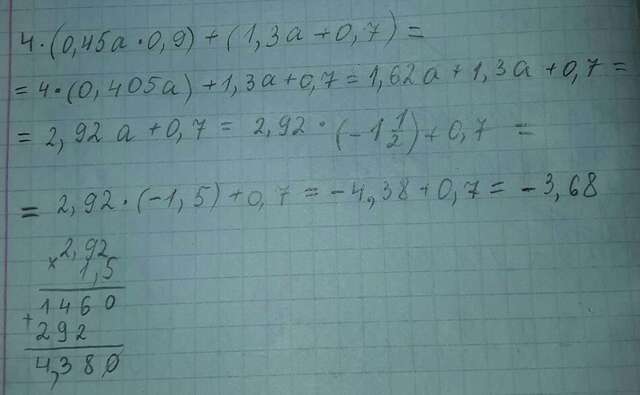 4·(0,45a·0,9)+(1,3a+0,7)=
=4·(0,405a)+1,3a+0,7=1,62a+1,3a+0,7=
=2,92a+0,7=2,92·(-1 1/2)+0,7=
=2,92·(-1,5)+0,7=-4,38+0,7=-3,68
2,92
× 1,5
1460
+
292
4,380